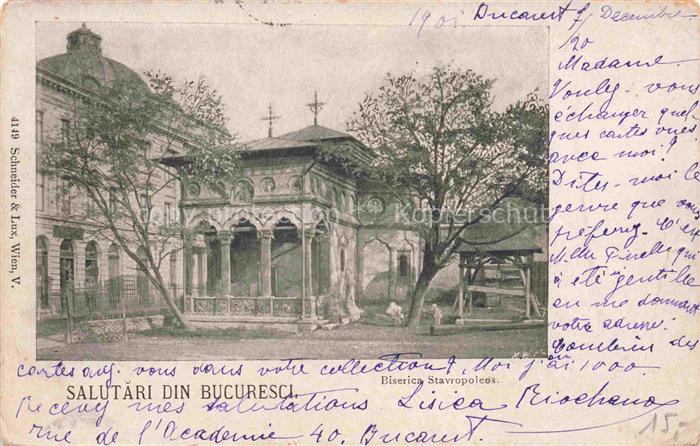 1901. Bucarest 7/20 Decembre
Madame.
Voulez-vous
échanger quel-
ques cartes vues
avec moi?
Dites-moi le
genre que vous
préferez. C'est
Mlle Pinelle qui
à été gentille
en me donnant
votre adresse!
Combien des
cartes avez vous dans votre collection? Moi j'ai 1000.
Biserica Stavropoleos.
SALUTĂRI DIN BUCURESCI.
Recevez mes salutations Lisica
rue de l'Academie 40. Bucarest.
4149 Schneider & Lux, Wien, V.
copy protection · Kopierschutz
15,-